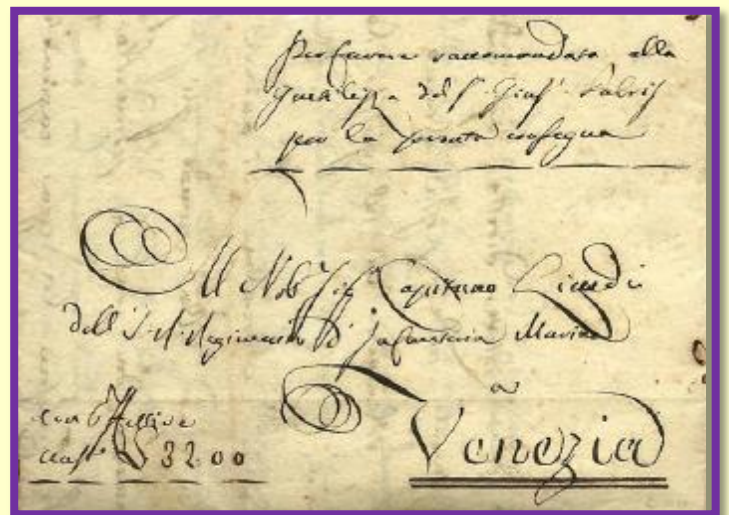 Per favore raccomandata alla
Gentilezza del S. Gius. Fabris
per la pronta consegna
Al Nob. Sig. Capitano
dell' I. R. Regimento d' Infanteria Marina
a
Venezia
con Effettive
3200